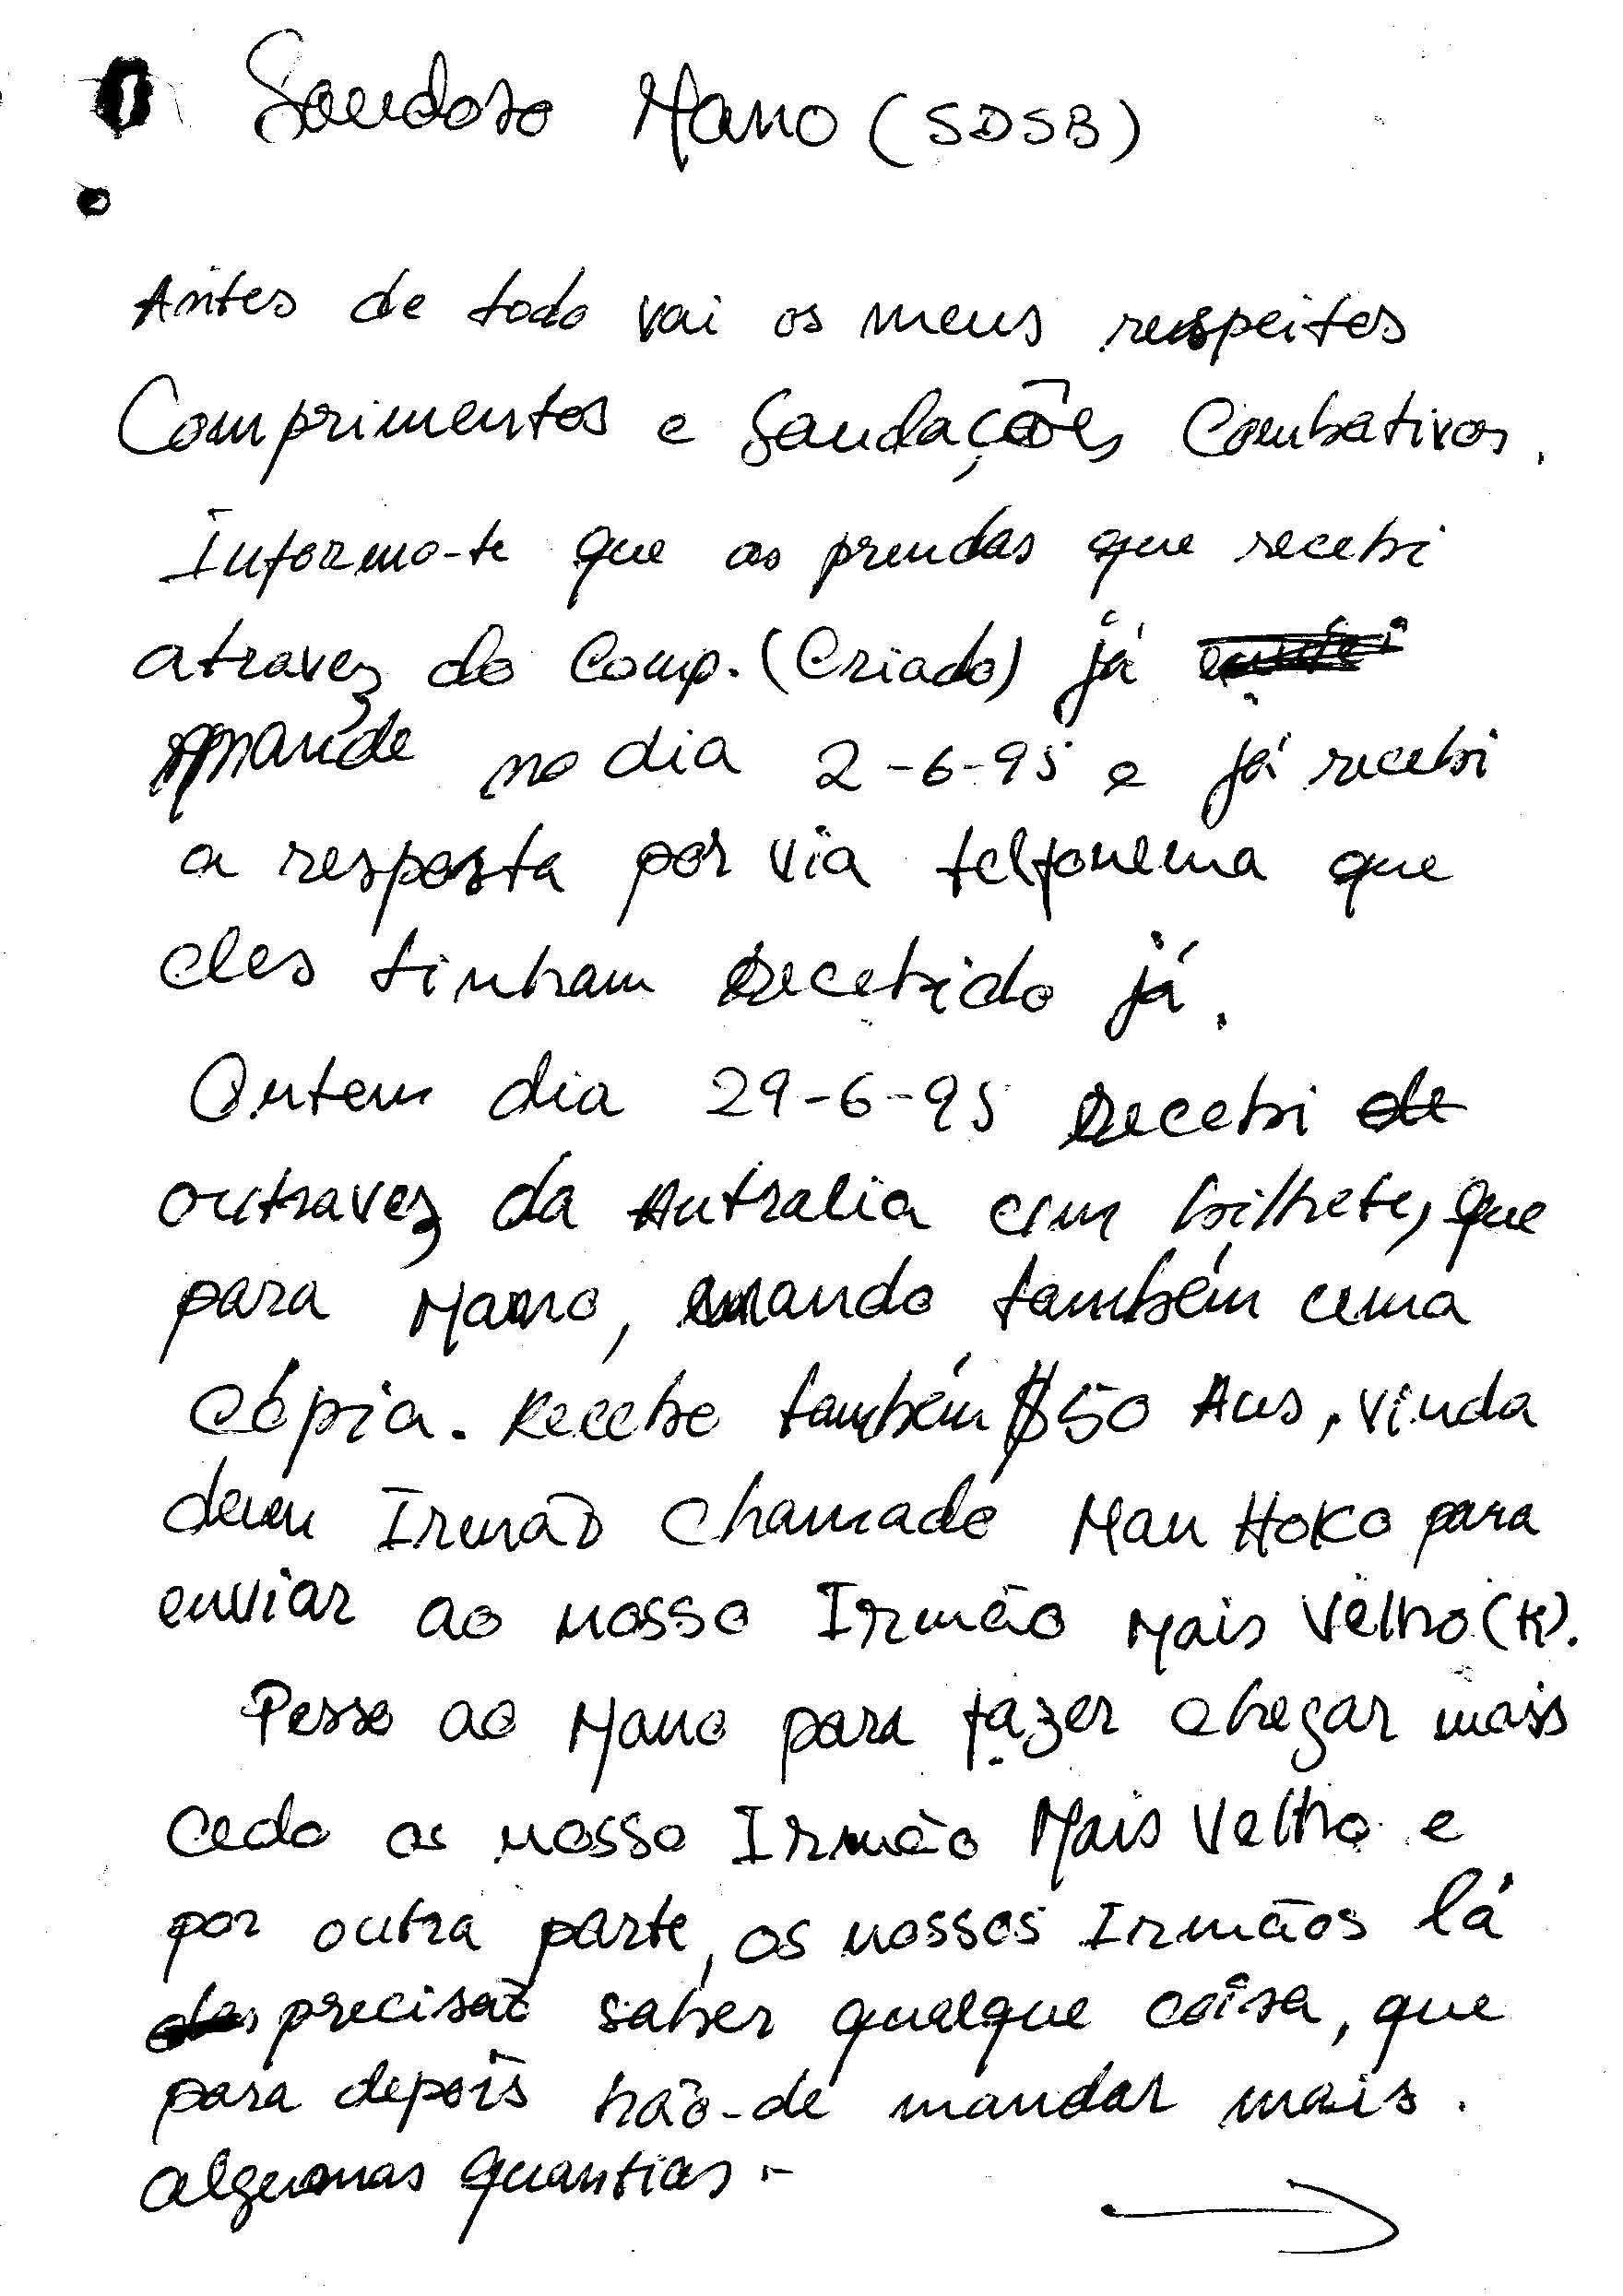 Saudoso Mano (SDSB)
Antes de todo vai os meus respeitos
Comprimentos e Saudações Combativos.
Informo-te que as prendas que recebi
atravez do Comp. (Criado) já
mande no dia 2-6-95 e já recebi
a resposta por via telfonema que
eles tinham recebido já.
Ontem dia 29-6-95 recebi de
outravez da Autralia um bilhete, que
para Mano, mando também uma
cópia. Recebe também $50 Aus, vinda
dum Irmão chamado Mau Hoko para
enviar ao nosso Irmão Mais Velho (K).
Pesso ao Mano para fazer chegar mais
cedo os nosso Irmão Mais Velho e
por outra parte, os nossos Irmãos lá
precisão saber qualque coisa, que
para depois hão-de mandar mais.
algumas quantias -